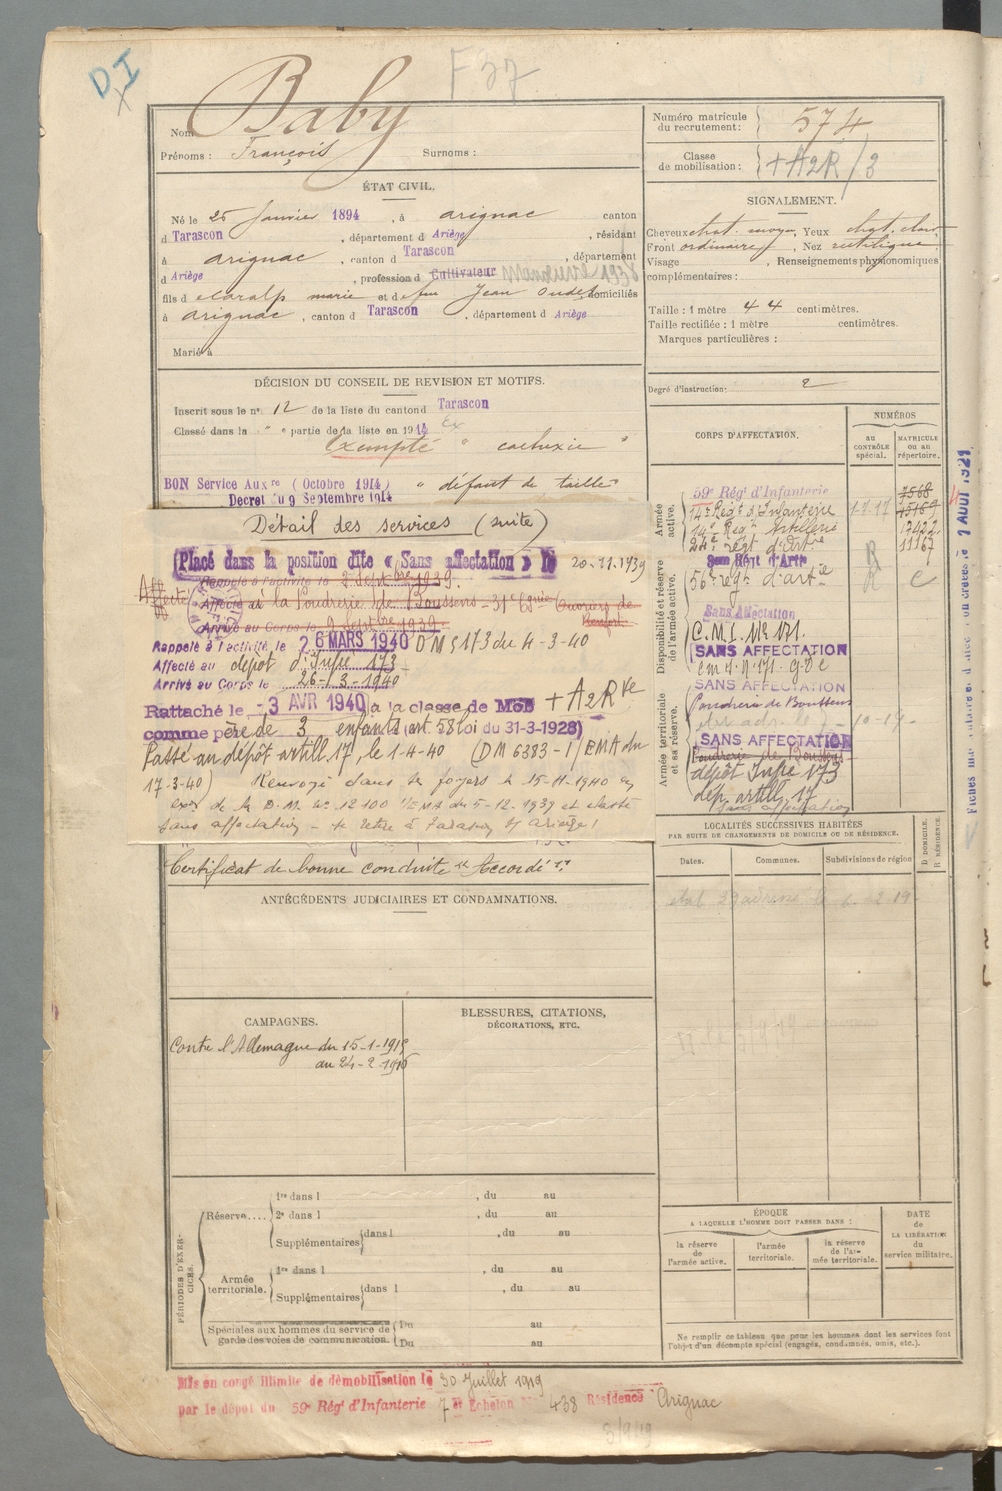 D I
F 37
Nom Baby
Prénoms : François Surnoms :
Numéro matricule du recrutement : 574
Classe de mobilisation : + A2R / 3
ÉTAT CIVIL.
Né le 25 Janvier 1894, à Arignac canton
d Tarascon, département d Ariège, résidant
à Arignac, canton d Tarascon, département
d Ariège, profession d Cultivateur
fils d marie et d feu Jean domiciliés
à Arignac, canton d Tarascon, département d Ariège
Marié à
SIGNALEMENT.
Cheveux chat. moyen, Yeux chat. clair
Front ordinaire, Nez rectiligne
Visage , Renseignements physionomiques
complémentaires :
Taille : 1 mètre 44 centimètres.
Taille rectifiée : 1 mètre centimètres.
Marques particulières :
Degré d'instruction : 2
DÉCISION DU CONSEIL DE REVISION ET MOTIFS.
Inscrit sous le n° 12 de la liste du canton d Tarascon
Classé dans la " " partie de la liste en 1914
Exempté " cachexie "
BON Service Auxre (Octobre 1914) " défaut de taille "
Decret du 9 Septembre 1914
Détail des services (suite)
Placé dans la position dite « Sans affectation » le 20-11-1939
Rappelé à l'activité le 2 septbre 1939.
Affecté à la Poudrerie de Boussens - 31e Cie Ouvriers de
Arrivé au Corps le 9 septbre 1939.
Rappelé à l'activité le 26 MARS 1940 DM S 1/3 du 4-3-40
Affecté au dépôt d'Infie 173
Arrivé au Corps le 26-3-1940
Rattaché le -3 AVR 1940 à la classe de Mob + A2Rve
comme père de 3 enfants (art. 58 loi du 31-3-1928)
Passé au dépôt artill. 17, le 1-4-40 (DM 6383-1/EMA du
17-3-40) Renvoyé dans ses foyers le 15-11-1940 en
exon de la D.M. N° 12100 1/EMA du 5-12-1939 et classé
sans affectation - se retire à Tarascon s/ Ariège
Certificat de bonne conduite "Accordé".
CORPS D'AFFECTATION.
NUMÉROS
au CONTRÔLE spécial.
MATRICULE ou au répertoire.
Armée active.
59e Régt d'Infanterie 7568
14e Régt d'Infanterie 17.17
14e Régt Artillerie 17422
24e régt d'Artrie 11167
Disponibilité et réserve de l'armée active.
56e régt d'artie R C
Sans Affectation
C.M.I. N° 171.
SANS AFFECTATION
SANS AFFECTATION
Armée territoriale et sa réserve.
Poudrerie de Boussens
SANS AFFECTATION
Poudrerie de Boussens
dépôt Infie 173
dép. artill. 17
Sans affectation
Fichés
AOUT 1921
LOCALITÉS SUCCESSIVES HABITÉES
PAR SUITE DE CHANGEMENTS DE DOMICILE OU DE RÉSIDENCE.
Dates. Communes. Subdivisions de région
D. DOMICILE. R. RÉSIDENCE.
ANTÉCÉDENTS JUDICIAIRES ET CONDAMNATIONS.
CAMPAGNES.
Contre l'Allemagne du 15-1-1915
au 24-2-1916
BLESSURES, CITATIONS, DÉCORATIONS, ETC.
PÉRIODES D'EXERCICES.
Réserve....
1re dans l , du au
2e dans l , du au
Supplémentaires dans l , du au
Armée territoriale.
1re dans l , du au
Supplémentaires dans l , du au
Spéciales aux hommes du service de garde des voies de communication.
Du au
Du au
ÉPOQUE
A LAQUELLE L'HOMME DOIT PASSER DANS :
la réserve de l'armée active.
l'armée territoriale.
la réserve de l'armée territoriale.
DATE DE LA LIBÉRATION du service militaire.
Ne remplir ce tableau que pour les hommes dont les services font
l'objet d'un décompte spécial (engagés, condamnés, omis, etc.).
Mis en congé illimité de démobilisation le 30 Juillet 1919
par le dépôt du 59e Régt d'Infanterie 7e Echelon N° 438 Résidence Arignac
5/9/19